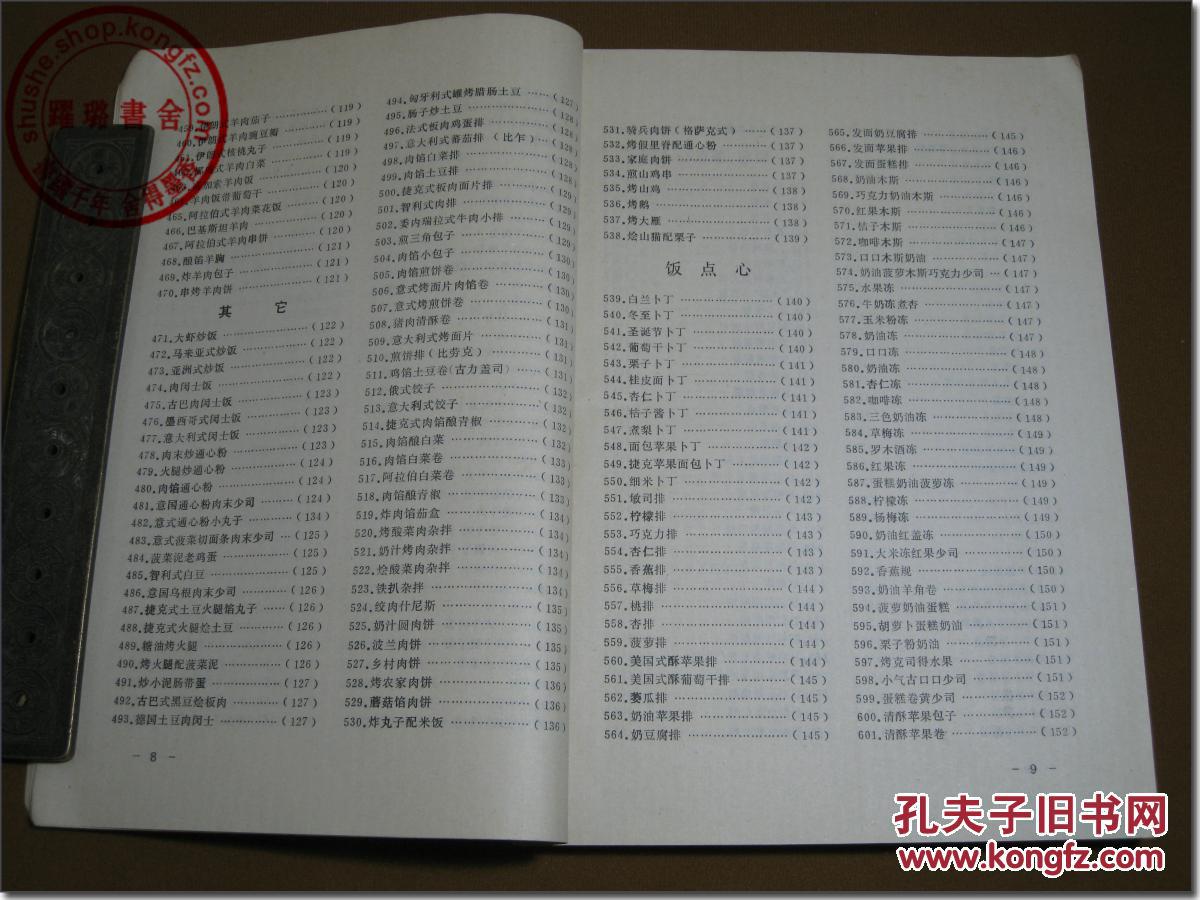 shushe.shop.kongfz.com
躍璐書舍
459.伊朗式羊肉茄子…………(119)
460.伊朗式羊肉豌豆瓣…………(119)
伊朗式核桃丸子…………(119)
式羊肉白菜…………(119)
加索羊肉饭…………(120)
羊肉饭带葡萄干…………(120)
465.阿拉伯式羊肉菜花饭…………(120)
466.巴基斯坦羊肉…………(120)
467.阿拉伯式羊肉串饼…………(120)
468.酿馅羊胸…………(121)
469.炸羊肉包子…………(121)
470.串烤羊肉饼…………(121)
其 它
471.大虾炒饭…………(122)
472.马来亚式炒饭…………(122)
473.亚洲式炒饭…………(122)
474.肉闵士饭…………(122)
475.古巴肉闵士饭…………(123)
476.墨西哥式闵士饭…………(123)
477.意大利式闵士饭…………(123)
478.肉末炒通心粉…………(123)
479.火腿炒通心粉…………(124)
480.肉馅通心粉…………(124)
481.意国通心粉肉末少司…………(124)
482.意式通心粉小丸子…………(134)
483.意式菠菜切面条肉末少司…(125)
484.菠菜泥老鸡蛋…………(125)
485.智利式白豆…………(125)
486.意国乌根肉末少司…………(126)
487.捷克式土豆火腿馅丸子…(126)
488.捷克式火腿烩土豆…………(126)
489.糖油烤火腿…………(126)
490.烤火腿配菠菜泥…………(126)
491.炒小泥肠带蛋…………(127)
492.古巴式黑豆烩板肉…………(127)
493.德国土豆肉闵士…………(127)
494.匈牙利式罐烤腊肠土豆……(127)
495.肠子炒土豆…………(128)
496.法式板肉鸡蛋排…………(128)
497.意大利式蕃茄排（比乍）…(128)
498.肉馅白菜排…………(128)
499.肉馅土豆排…………(128)
500.捷克式板肉面片排…………(129)
501.智利式肉排…………(129)
502.委内瑞拉式牛肉小排…………(129)
503.煎三角包子…………(129)
504.肉馅小包子…………(130)
505.肉馅煎饼卷…………(130)
506.意式烤面片肉馅卷…………(130)
507.意式烤煎饼卷…………(130)
508.猪肉清酥卷…………(131)
509.意大利式烤面片…………(131)
510.煎饼排（比劳克）…………(131)
511.鸡馅土豆卷（古力盖司）…(131)
512.俄式饺子…………(132)
513.意大利式饺子…………(132)
514.捷克式肉馅酿青椒…………(132)
515.肉馅酿白菜…………(132)
516.肉馅白菜卷…………(133)
517.阿拉伯白菜卷…………(133)
518.肉馅酿青椒…………(133)
519.炸肉馅茄盒…………(133)
520.烤酸菜肉杂拌…………(134)
521.奶汁烤肉杂拌…………(134)
522.烩酸菜肉杂拌…………(134)
523.铁扒杂拌…………(134)
524.绞肉什尼斯…………(135)
525.奶汁圆肉饼…………(135)
526.波兰肉饼…………(135)
527.乡村肉饼…………(135)
528.烤农家肉饼…………(136)
529.蘑菇馅肉饼…………(136)
530.炸丸子配米饭…………(136)
－ 8 －
531.骑兵肉饼（格萨克式）……(137)
532.烤假里脊配通心粉…………(137)
533.家庭肉饼…………(137)
534.煎山鸡串…………(135)
535.烤山鸡…………(138)
536.烤鹅…………(138)
537.烤大雁…………(138)
538.烩山猫配栗子…………(139)
饭 点 心
539.白兰卜丁…………(140)
540.冬至卜丁…………(140)
541.圣诞节卜丁…………(140)
542.葡萄干卜丁…………(140)
543.栗子卜丁…………(141)
544.桂皮面卜丁…………(141)
545.杏仁卜丁…………(141)
546.桔子酱卜丁…………(141)
547.煮梨卜丁…………(141)
548.面包苹果卜丁…………(142)
549.捷克苹果面包卜丁…………(142)
550.细米卜丁…………(142)
551.敏司排…………(142)
552.柠檬排…………(143)
553.巧克力排…………(143)
554.杏仁排…………(143)
555.香蕉排…………(143)
556.草梅排…………(144)
557.桃排…………(144)
558.杏排…………(144)
559.菠萝排…………(144)
560.美国式酥苹果排…………(144)
561.美国式酥葡萄干排…………(145)
562.蒌瓜排…………(145)
563.奶油苹果排…………(145)
564.奶豆腐排…………(145)
565.发面奶豆腐排…………(145)
566.发面苹果排…………(146)
567.发面蛋糕排…………(146)
568.奶油木斯…………(146)
569.巧克力奶油木斯…………(146)
570.红果木斯…………(146)
571.桔子木斯…………(146)
572.咖啡木斯…………(147)
573.口口木斯奶油…………(147)
574.奶油菠萝木斯巧克力少司…(147)
575.水果冻…………(147)
576.牛奶冻煮杏…………(147)
577.玉米粉冻…………(147)
578.奶油冻…………(147)
579.口口冻…………(148)
580.奶油冻…………(148)
581.杏仁冻…………(148)
582.咖啡冻…………(148)
583.三色奶油冻…………(148)
584.草梅冻…………(149)
585.罗木酒冻…………(149)
586.红果冻…………(149)
587.蛋糕奶油菠萝冻…………(149)
588.柠檬冻…………(149)
589.杨梅冻…………(149)
590.奶油红盖冻…………(150)
591.大米冻红果少司…………(150)
592.香蕉规…………(150)
593.奶油羊角卷…………(150)
594.菠萝奶油蛋糕…………(151)
595.胡萝卜蛋糕奶油…………(151)
596.栗子粉奶油…………(151)
597.烤克司得水果…………(151)
598.小气古口口少司…………(151)
599.蛋糕卷黄少司…………(152)
600.清酥苹果包子…………(152)
601.清酥苹果卷…………(152)
－ 9 －
孔夫子旧书网
www.kongfz.com